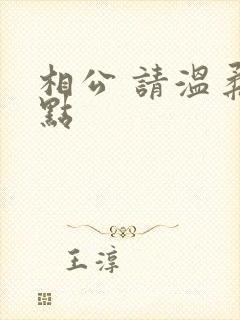 相公 請溫柔
點
王淳